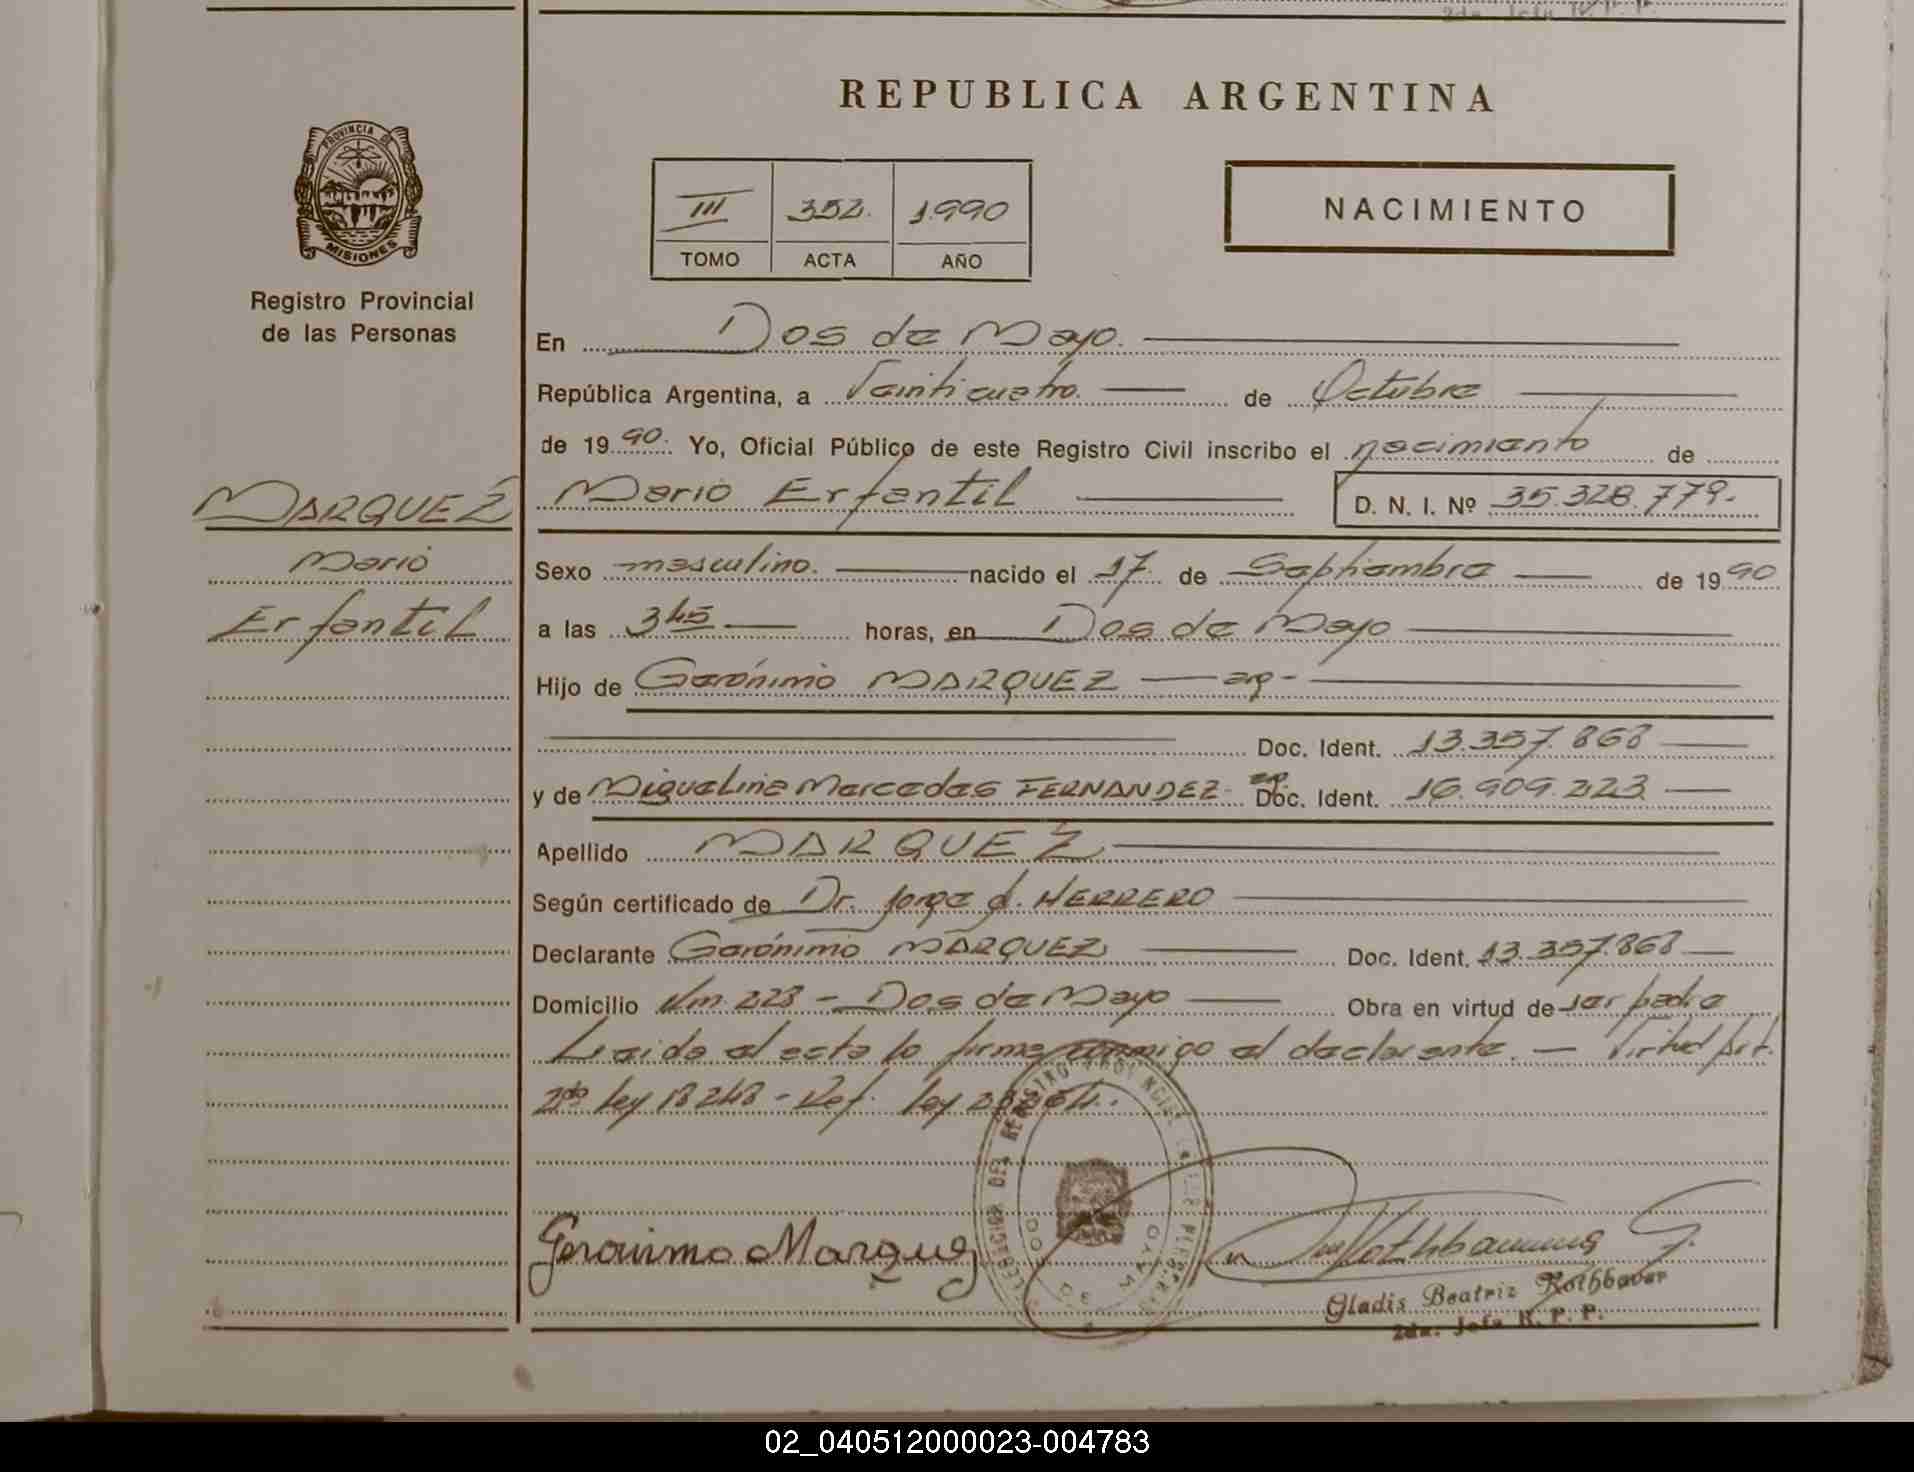 2da. Jefa R. P. P.
REPUBLICA ARGENTINA
PROVINCIA DE
MISIONES
Registro Provincial
de las Personas
III 352. 1990
TOMO ACTA AÑO
NACIMIENTO
En Dos de Mayo.
República Argentina, a Veinticuatro. de Octubre
de 1990. Yo, Oficial Público de este Registro Civil inscribo el nacimiento de
MARQUEZ
Mario Erfantil D. N. I. Nº 35.328.779.
Mario
Erfantil
Sexo masculino. nacido el 17 de Septiembre de 1990
a las 3 45 horas, en Dos de Mayo
Hijo de Gerónimo MARQUEZ — arg -
Doc. Ident. 13.357.868
y de Miguelina Mercedes FERNANDEZ - arg. Doc. Ident. 16.909.223
Apellido MARQUEZ
Según certificado de Dr. Jorge J. HERRERO
Declarante Gerónimo MARQUEZ Doc. Ident. 13.357.868
Domicilio Km. 223 - Dos de Mayo Obra en virtud de ser padre
Leida el acta lo firma conmigo el declarante. — Virtud Art.
2do ley 18248 - Ref. ley
DOS DE MAYO
Geronimo Marquez
Gladis Beatriz Rothbauer
2da. Jefa R. P. P.
02_040512000023-004783